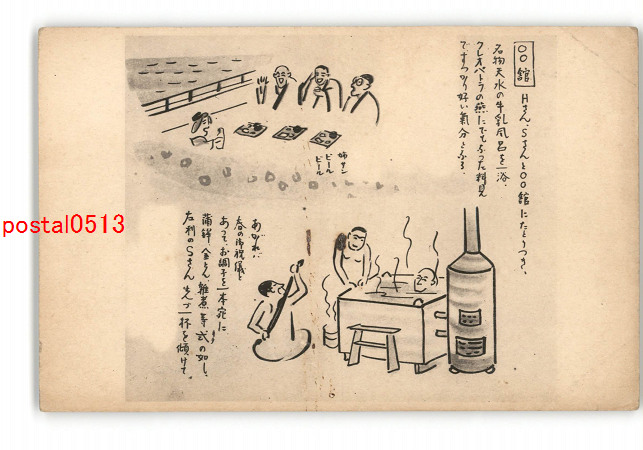 〇〇館
Hさん、Sさんと〇〇館にたどりつき、
名物天水の牛乳風呂を一浴、
クレオパトラの燕にでもなった料見
ですっかり好い氣分となる。
姉サン
ビール
ビール
あがれば
春の御祝儀と
あって、お銚子を一本宛に
蒲鉾、金とん、雜煮等式の如し、
左利のSさん先づ一杯を傾けて、
postal0513